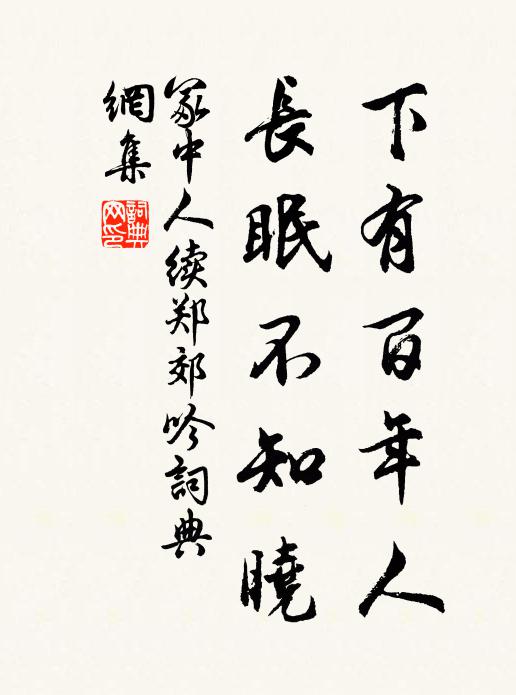 下有百年人
長眠不知曉
冢中人续郑郊吟詞典
網集
詞典
网印